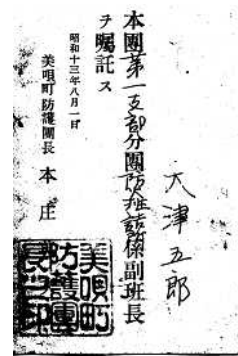 大津五郎
本團第一支部分團防班係副班長
ヲ囑託ス
昭和十三年八月一日
美唄町防護團長 本庄
美唄町
防護團
長之印